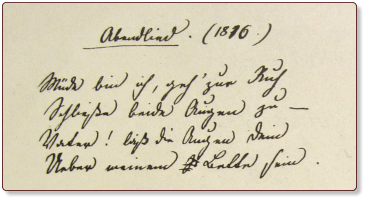 Abendlied. (1816.)
Müde bin ich, geh' zur Ruh
Schließe beide Augen zu –
Vater! laß die Augen dein
Ueber meinem Bette sein.